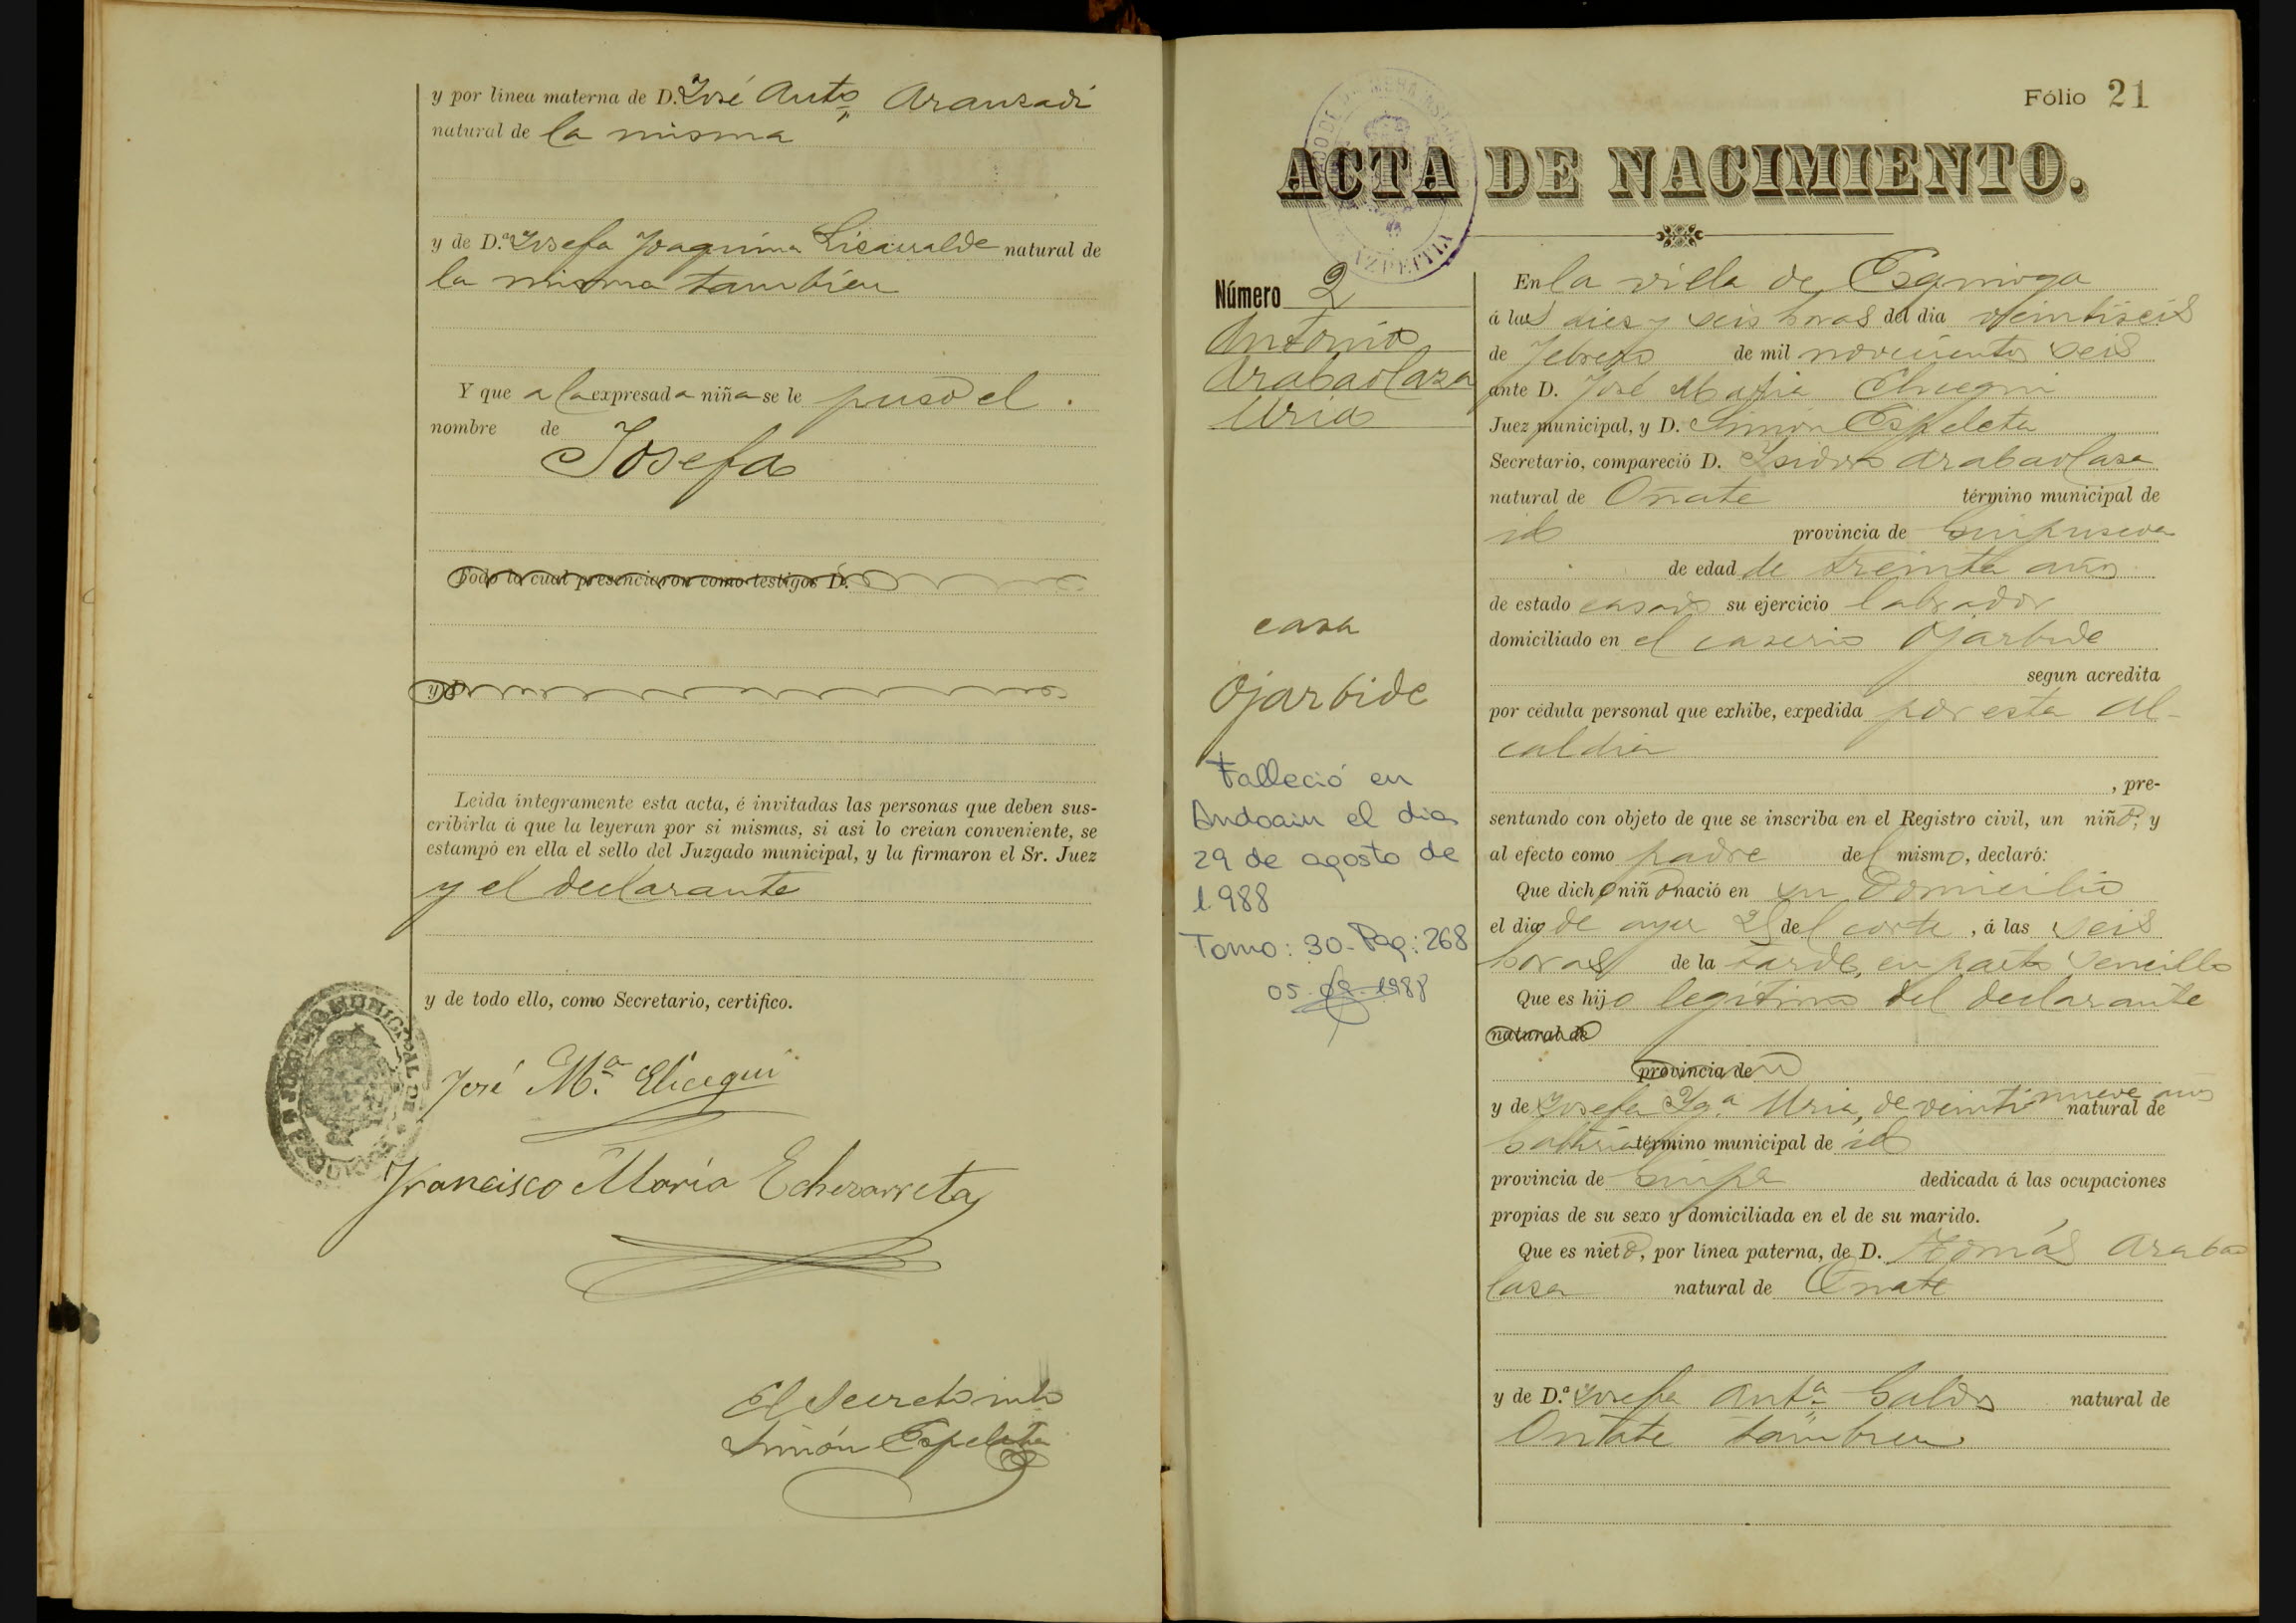 y por línea materna de D. José Anto. Aranzadi
natural de la misma
y de D.ª Josefa Joaquina Lizarralde natural de
la misma tambien
Y que a la expresada niña se le puso el
nombre de
Josefa
Todo lo cual presenciaron como testigos D.
y D.
Leida íntegramente esta acta, é invitadas las personas que deben sus-
cribirla á que la leyeran por si mismas, si asi lo creian conveniente, se
estampó en ella el sello del Juzgado municipal, y la firmaron el Sr. Juez
y el declarante
y de todo ello, como Secretario, certifico.
José M.ª Elicegui
Francisco María Echevarreta
El Secreto
Simón Espeleta
Fólio 21
ACTA DE NACIMIENTO.
AZPEITIA
Número 2
Antonio
Arabaolaza
Uria
casa
Ojarbide
Falleció en
Andoain el dia
29 de agosto de
1988
Tomo: 30 - Pag.: 268
05-09-1988
En la villa de Ezquioga
á las diez y seis horas del dia veintiseis
de Febrero de mil novecientos seis
ante D. José Maria Elicegui
Juez municipal, y D. Simón Espeleta
Secretario, compareció D. Isidro Arabaolaza
natural de Oñate término municipal de
id provincia de Guipuzcoa
de edad de treinta años
de estado casado su ejercicio labrador
domiciliado en el caserio Ojarbide
segun acredita
por cédula personal que exhibe, expedida por esta Al-
caldia
, pre-
sentando con objeto de que se inscriba en el Registro civil, un niño, y
al efecto como padre del mismo, declaró:
Que dicho niño nació en su domicilio
el dia de ayer 25 del corte, á las seis
horas de la tarde, en parto sencillo
Que es hijo legítimo del declarante
natural de
provincia de
y de Josefa Iga Uria, de veintinueve años natural de
Gabiria término municipal de id
provincia de Guipa dedicada á las ocupaciones
propias de su sexo y domiciliada en el de su marido.
Que es nieto, por línea paterna, de D. Tomás Arabao
laza natural de Oñate
y de D.ª Josefa Anta. Galdos natural de
Oñate tambien